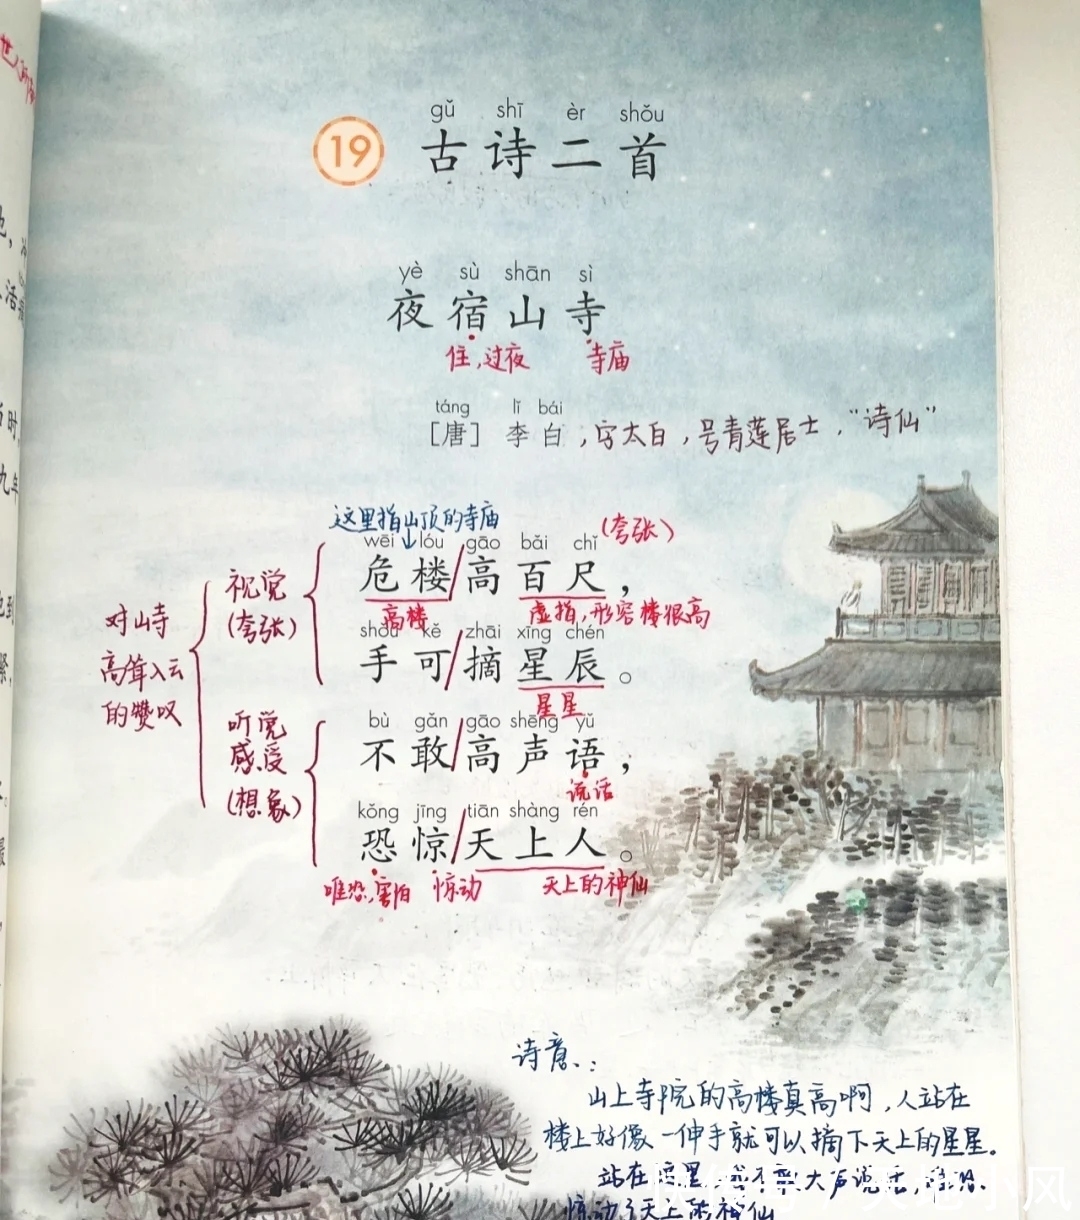 世人
19
gǔ shī èr shǒu
古诗二首
yè sù shān sì
夜宿山寺
住,过夜 寺庙
táng lǐ bái
[唐] 李白,字太白,号青莲居士,“诗仙”
这里指山顶的寺庙
(夸张)
wēi lóu gāo bǎi chǐ
危楼/高百尺,
高楼 虚指,形容楼很高
shǒu kě zhāi xīng chén
手可/摘星辰。
星星
bù gǎn gāo shēng yǔ
不敢/高声语,
说话
kǒng jīng tiān shàng rén
恐惊/天上人。
唯恐,害怕 惊动 天上的神仙
视觉
(夸张)
听觉
感受
(想象)
对山寺
高耸入云
的赞叹
活
时,
九年
诗意:
山上寺院的高楼真高啊,人站在
楼上好像一伸手就可以摘下天上的星星。
站在这里 大声说话,
惊动了天上的神仙
天地小风